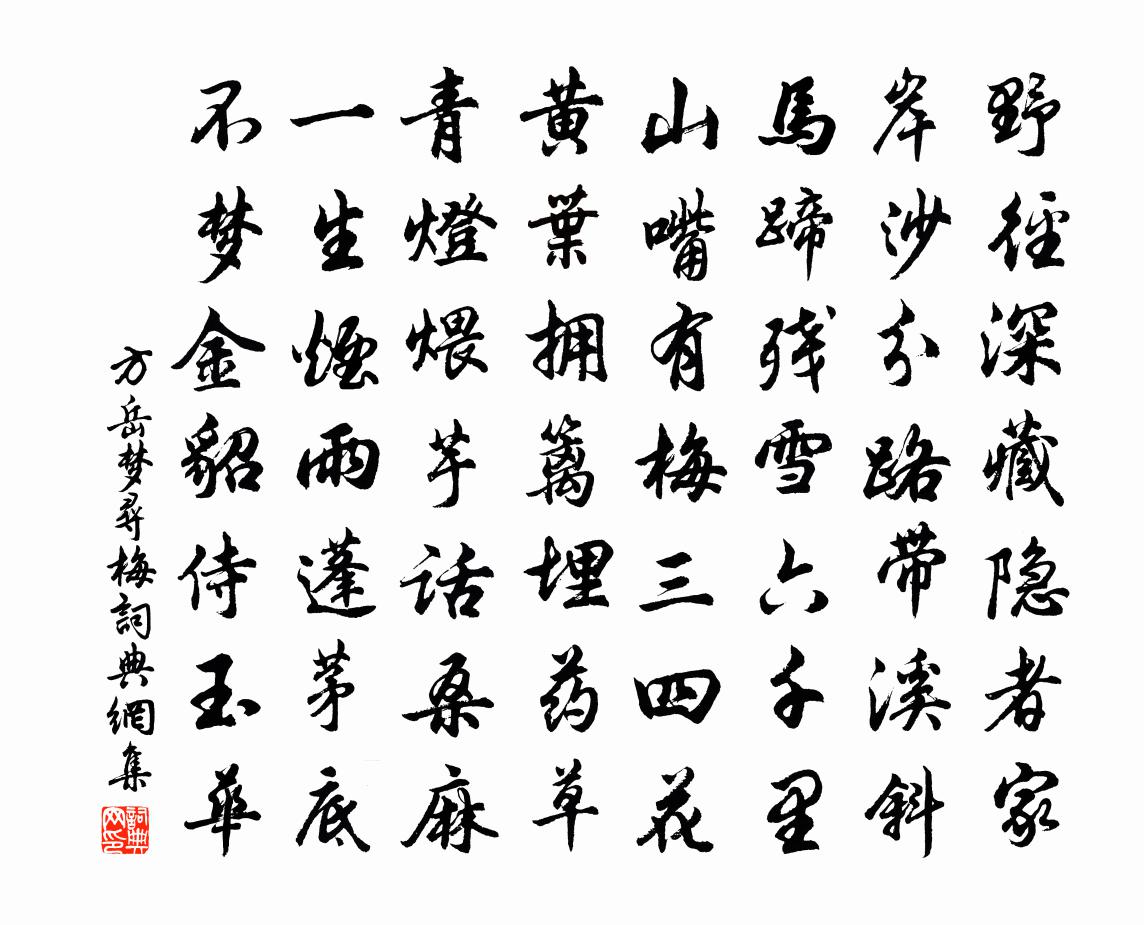 野徑深藏隐者家
岸沙分路带溪斜
馬蹄残雪六千里
山嘴有梅三四花
黄葉拥篱埋药草
青燈煨芋话桑麻
一生煙雨蓬茅底
不梦金貂侍玉華
方岳梦尋梅詞典網集
詞典网印